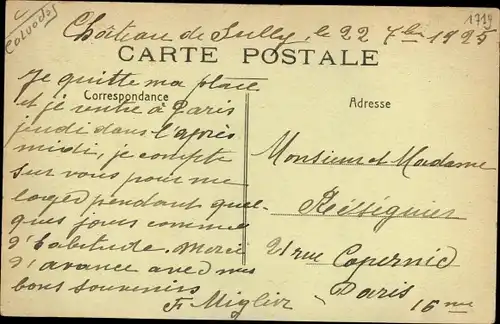 Calvados
1719
Château de Sully, le 22 7bre 1925
CARTE POSTALE
Correspondance
Adresse
Je quitte ma place
et je rentre à Paris
jeudi dans l'après
midi, je compte
sur vous pour me
loger pendant quel-
ques jours comme
d'habitude. Merci
d'avance avec mes
bons souvenirs
Monsieur et Madame
Rességuier
21 rue Copernic
Paris
16me